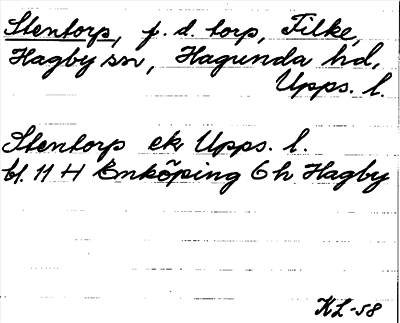 Stentorp, f. d. torp, Tilke,
Hagby sn, Hagunda hd,
Upps. l.
Stentorp ek Upps. l.
bl. 11 H Enköping 6 h Hagby
KL-58